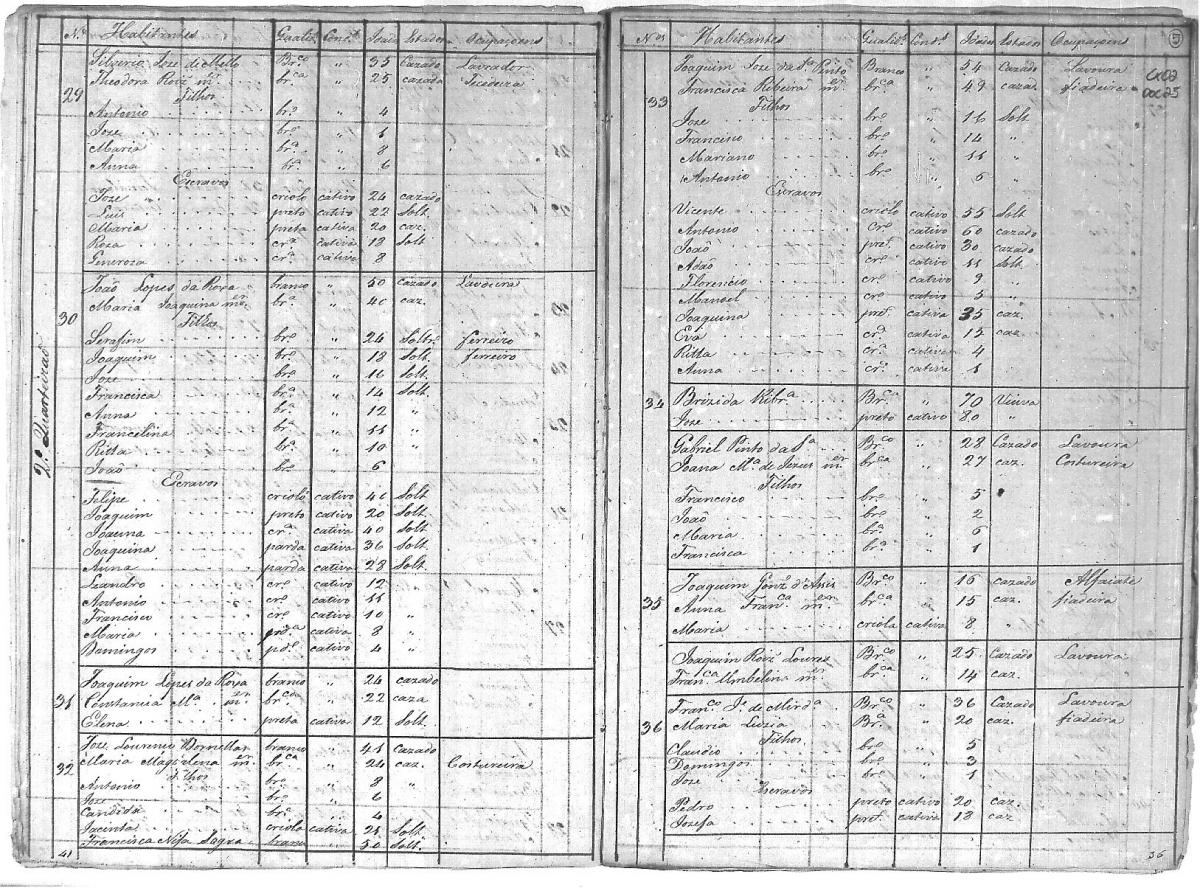 Nos Habitantes Qualide Conde Idade Estado Ocupaçoens
Silverio Joze de Mello Brco " 35 Cazado Lavrador
Theodora Roiz mer brca " 25 cazada Tecedeira
Filhos
29
Antonio bro " 4
Joze bro " 1
Maria bra " 8
Anna bra " 6
Escravos
Joze criolo cativo 24 cazado
Luis preto cativo 22 Solt.
Maria preta cativa 20 caz.
Roza cra cativa 13 Solt
Generoza cra cativa 8
João Lopes da Roza branco " 50 cazado Lavoura
Maria Joaquina mer bra " 40 caz.
30 Filhos
Serafim bro " 24 Soltro ferreiro
Joaquim bro " 18 Solt. ferreiro
Joze bro " 16 Solt.
Francisca bra " 14 Solt
Anna bra " 12 "
Francelina bra " 11 "
Ritta bra " 10 "
João bro " 6
2.o Quarteirão
Escravos
Felipe criolo cativo 40 Solt.
Joaquim preto cativo 20 Solt.
Joanna cra cativa 40 Solt.
Joaquina parda cativa 36 Solt.
Anna parda cativa 28 Solt.
Leandro cro cativo 12 "
Antonio cro cativo 11 "
Francisco cro cativo 10 "
Maria pda cativa 8 "
Domingos pdo cativo 4 "
Joaquim Lopes da Roza branco " 24 cazado
31 Constancia Ma mer brca " 22 caza
Elena preta cativa 12 Solt.
Joze Lourenço branco " 41 Cazado
32 Maria Magdalena mer brca " 24 caz. Costureira
Filhos
Antonio bro " 8 "
Joze bro " 6
Candida bra " 4
Jacinta criola cativa 21 Solt.
Francisca branca 50 Solt.
41
Nos Habitantes Qualide Conde Idade Estado Ocupaçoens
Joaquim Joze da Sa Pinto Branco " 54 Cazado Lavoura
Francisca Ribeira mer brca " 49 cazaa fiadeira
33 Filhos
Joze bro " 16 Solt
Francisco bro " 14 "
Mariano bro " 11 "
Antonio bro " 6 "
Escravos
Vicente criolo cativo 55 Solt
Antonio cro cativo 60 cazado
João preto cativo 30 cazado
Adão cro cativo 11 Solt.
Florencio cro cativo 9 "
Manoel cro cativo 5 "
Joaquina preta cativa 35 caz.
Eva cra cativa 15 caz.
Ritta cra cativa 4
Anna cra cativa 1
34 Brizida Ribra Brca " 70 Viuva
Joze preto cativo 80 "
Gabriel Pinto da Sa Brco " 28 Cazado Lavoura
Joana Ma de Jezus mer brca " 27 caz. Costureira
Filhos
Francisco bro " 5
João bro " 2
Maria bra " 6
Francisca bra " 1
Joaquim Gonz d'Assis Brco " 16 cazado Alfaiate
35 Anna Franca mer brca " 15 caz. fiadeira
Maria criola cativa 8 "
Joaquim Roiz Loures Brco " 25 Cazado Lavoura
Franca Umbelina mer brca " 14 caz.
Franco Je de Mirda Brco " 36 Cazado Lavoura
36 Maria Luzia Bra " 20 caz. fiadeira
Filhos
Claudio bro " 5
Domingos bro " 3
Joze bro " 1
Escravos
Pedro preto cativo 20 caz
Jozefa preta cativa 13 caz
36